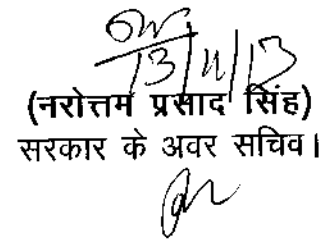 13/11/13
(नरोत्तम प्रसाद सिंह)
सरकार के अवर सचिव।